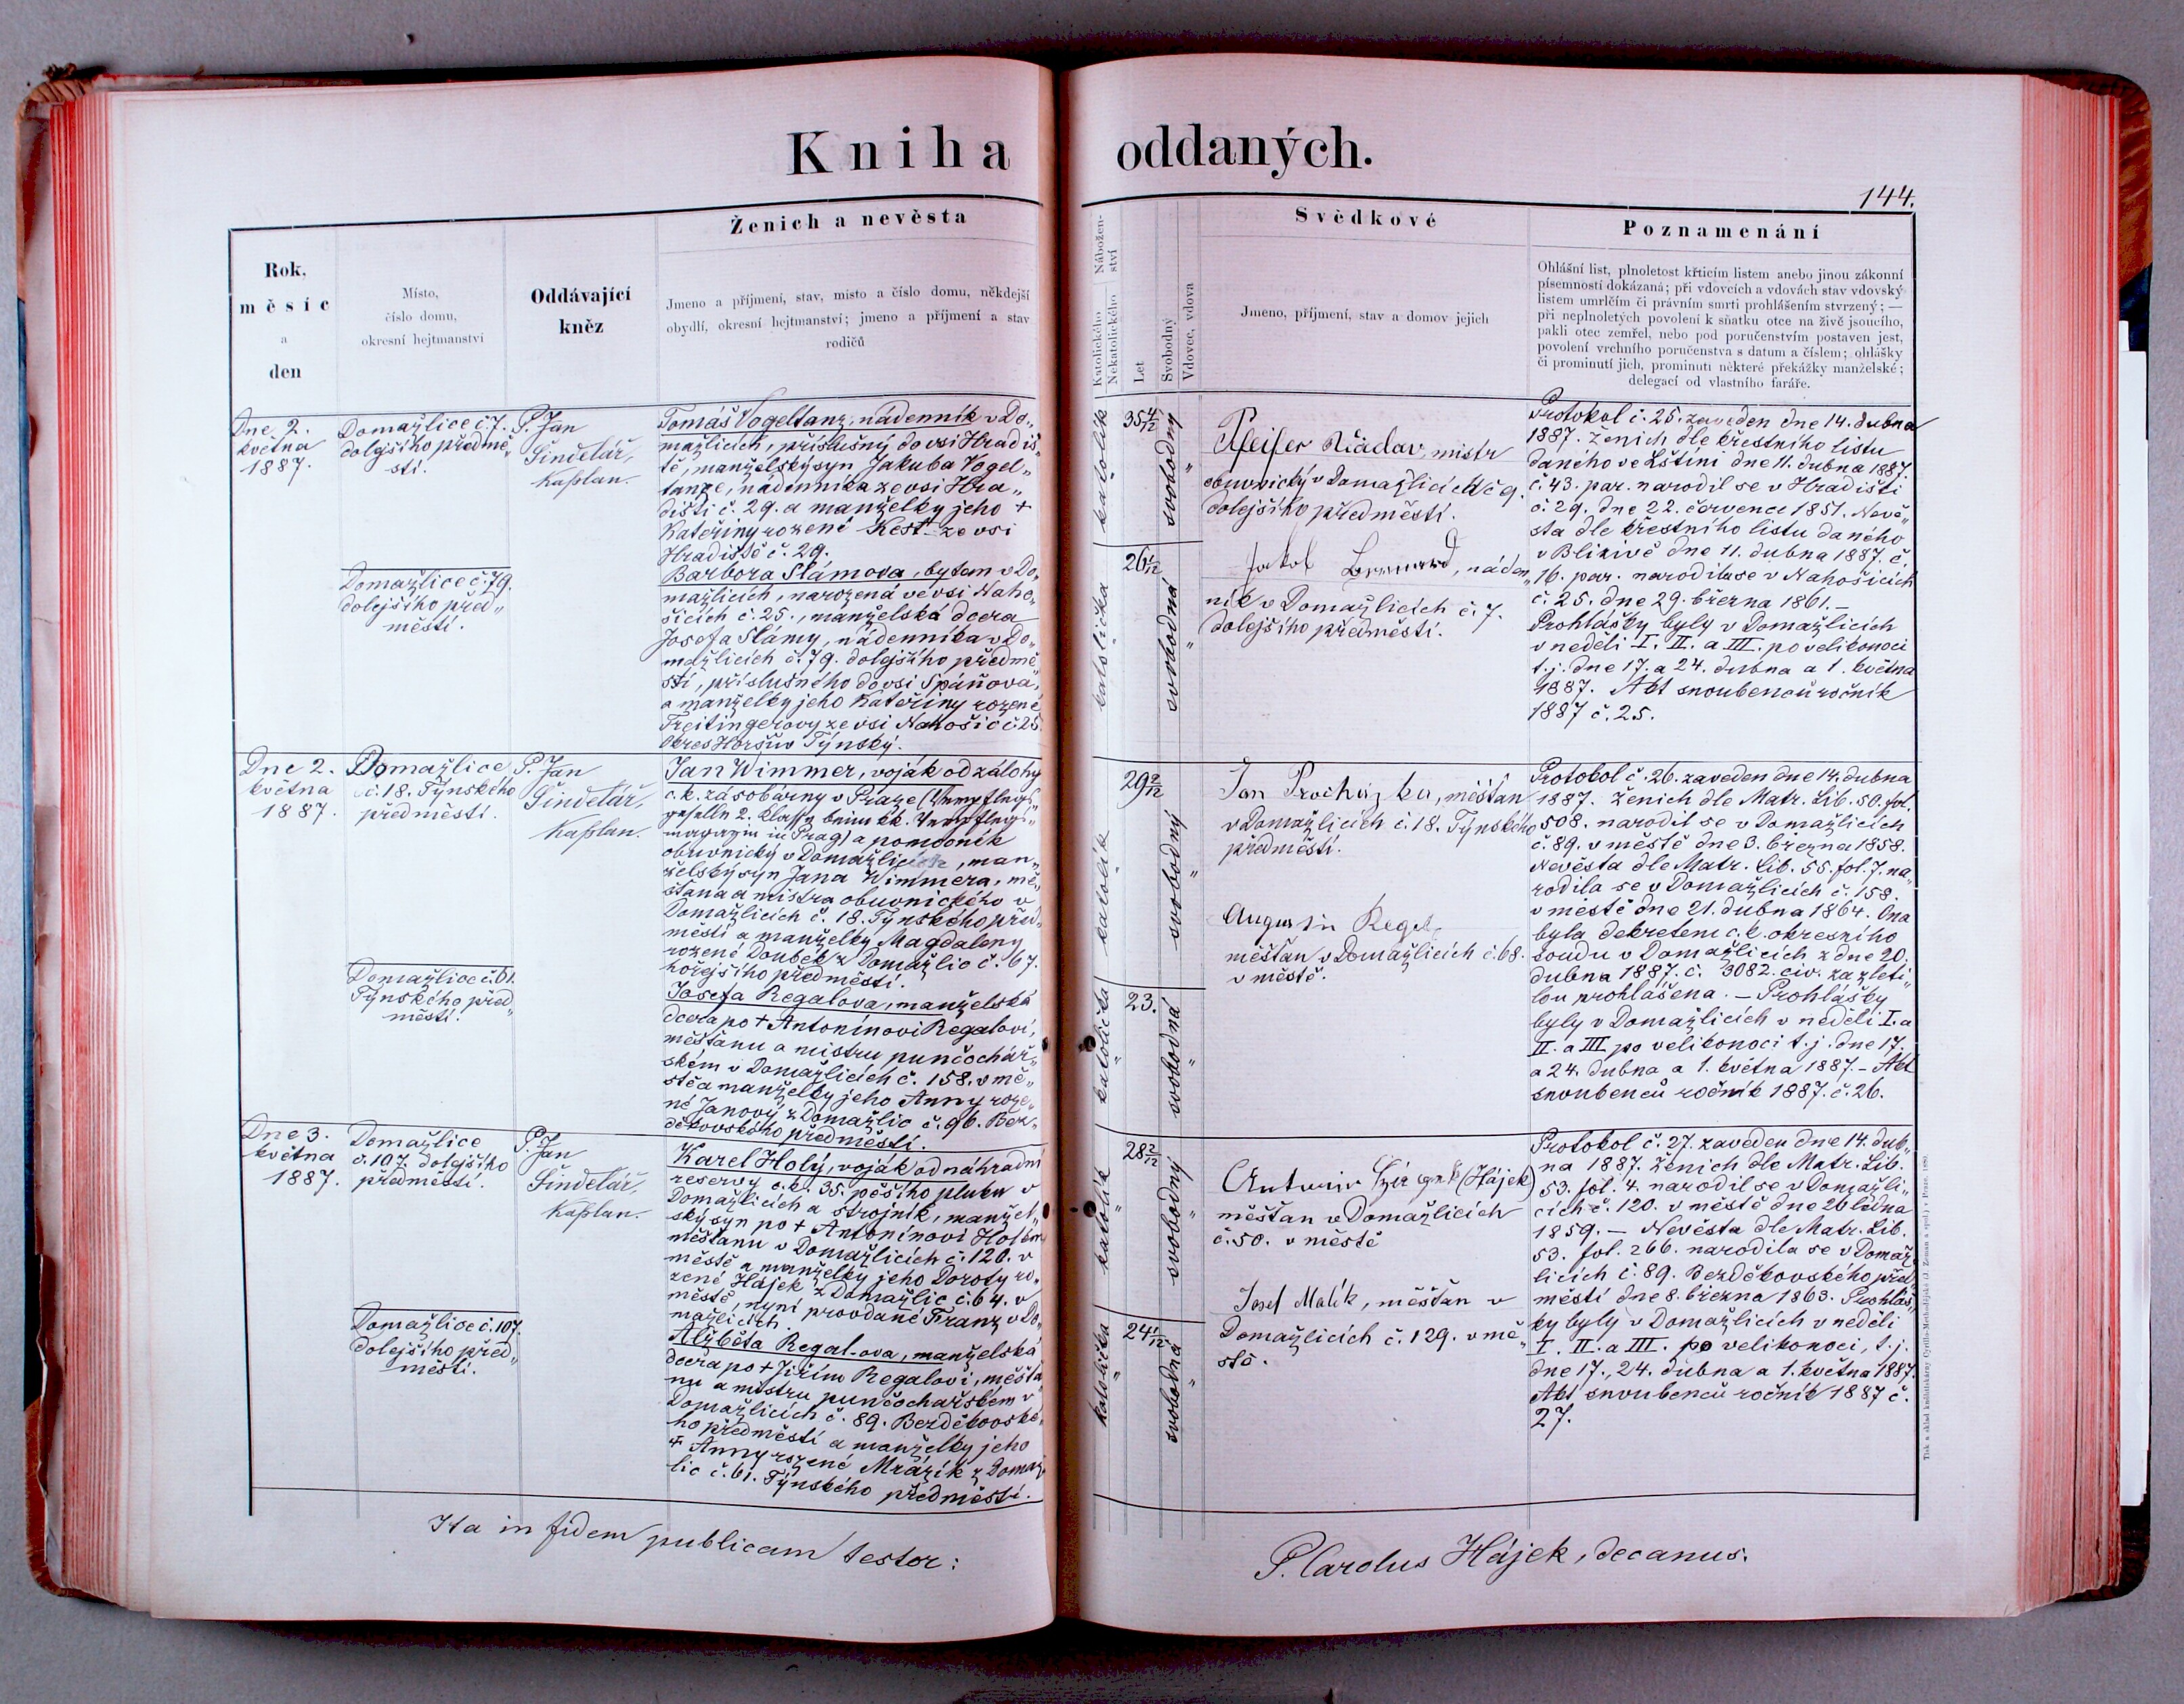 Kniha oddaných.
144.
Rok,
měsíc
a
den
Místo,
číslo domu,
okresní hejtmanství
Oddávající
kněz
Ženich a nevěsta
Jmeno a příjmení, stav, místo a číslo domu, někdejší
obydlí, okresní hejtmanství; jmeno a příjmení a stav
rodičů
Nábožen-
ství
Katolického
Nekatolického
Let
Svobodný
Vdovec, vdova
Svědkové
Jmeno, příjmení, stav a domov jejich
Poznamenání
Ohlášní list, plnoletost křticím listem anebo jinou zákonní
písemností dokázaná; při vdovcích a vdovách stav vdovský
listem umrlčím či právním smrti prohlášením stvrzený; —
při neplnoletých povolení k sňatku otce na živě jsoucího,
pakli otec zemřel, nebo pod poručenstvím postaven jest,
povolení vrchního poručenstva s datum a číslem; ohlášky
či prominutí jich, prominutí některé překážky manželské;
delegací od vlastního faráře.
Dne 2.
května
1887.
Domažlice č. 7.
dolejšího předmě„
stí.
P. Jan
Šindelář,
Kaplan.
Tomáš Vogeltanz, nádenník v Do„
mažlicích, příslušný do vsi Hradiš„
tě, manželský syn Jakuba Vogel„
tanze, nádenníka ze vsi Hra„
dišti č. 29. a manželky jeho +
Kateřiny rozené Kest ze vsi
Hradiště č. 29.
Domažlice č. 79.
dolejšího před„
městí.
Barbora Slámova, bytem v Do„
mažlicích, narozená ve vsi Naho„
šicích č. 25., manželská dcera
Josefa Slámy, nádenníka v Do„
mažlicích č. 79. dolejšího předmě„
stí, příslušného do vsi Spáňova,
a manželky jeho Kateřiny rozené
Freitingerovy ze vsi Nahošic č. 25
Okres Horšův Týnský.
katolík
35 4/12
svobodný
katolička
26 1/12
svobodná
Pfeifer Václav, mistr
obuvnický v Domažlicích č 9.
dolejšího předměstí.
Jakob Bernard, náden„
ník v Domažlicích č. 7.
dolejšího předměstí.
Protokol č. 25. zaveden dne 14. dubna
1887. Ženich dle křestního listu
daného ve Lštíni dne 11. dubna 1887.
č. 43. par. narodil se v Hradišti
č. 29. dne 22. července 1851. Nevě„
sta dle křestního listu daného
v Blikivě dne 11. dubna 1887. č.
16. par. narodila se v Nahošicích
č. 25. dne 29. března 1861. —
Prohlášky byly v Domažlicích
v neděli I. II. a III. po velikonoci
t. j. dne 17. a 24. dubna a 1. května
1887. Akt snoubenců ročník
1887 č. 25.
Dne 2.
května
1887.
Domažlice
č. 18. Týnského
předměstí.
P. Jan
Šindelář,
Kaplan.
Jan Wimmer, voják od zálohy
c. k. zásobárny v Praze (Verpflegs„
geselle 2. Klasse beim k.k. Verpflegs„
magazin in Prag) a pomocník
obuvnický v Domažlicích, man„
želský syn Jana Wimmera, mě„
šťana a mistra obuvnického v
Domažlicích č. 18. Týnského před„
městí a manželky Magdaleny
rozené Doubek z Domažlic č. 67.
hořejšího předměstí.
Domažlice č. 61.
Týnského před„
městí.
Josefa Regalova, manželská
dcera po + Antonínovi Regalovi,
měšťanu a mistru punčochář„
ském v Domažlicích č. 158. v mě„
stě a manželky jeho Anny roze„
né Janovy z Domažlic č. 96. Bez„
děkovského předměstí.
katolík
29 2/12
svobodný
katolička
23.
svobodná
Jan Procházka, měšťan
v Domažlicích č. 18. Týnského
předměstí.
Augustin Regal,
měšťan v Domažlicích č. 68.
v městě.
Protokol č. 26. zaveden dne 14. dubna
1887. Ženich dle Matr. Lib. 50. fol.
508. narodil se v Domažlicích
č. 89. v městě dne 3. března 1858.
Nevěsta dle Matr. Lib. 55. fol. 7. na„
rodila se v Domažlicích č. 158.
v městě dne 21. dubna 1864. Ona
byla dekretem c. k. okresního
soudu v Domažlicích z dne 20.
dubna 1887. č. 3082. civ. za zleti„
lou prohlášena. — Prohlášky
byly v Domažlicích v neděli I. a
II. a III po velikonoci t. j. dne 17.
a 24. dubna a 1. května 1887. — Akt
snoubenců ročník 1887. č. 26.
Dne 3.
května
1887.
Domažlice
č. 107. dolejšího
předměstí.
P. Jan
Šindelář,
Kaplan.
Karel Holý, voják od náhradní
reservy c. k. 35. pěšího pluku v
Domažlicích a strojník, manžel„
ský syn po + Antonínovi Holém
měšťanu v Domažlicích č. 120. v
městě a manželky jeho Doroty ro„
zené Hájek z Domažlic č. 64. v
městě, nyní provdané Franz v Do„
mažlicích.
Domažlice č. 107.
dolejšího před„
městí.
Alžběta Regalova, manželská
dcera po + Jiřím Regalovi, měšťa„
nu a mistru punčochařském v
Domažlicích č. 89. Bezděkovské„
ho předměstí a manželky jeho
+ Anny rozené Mrázík z Domaž„
lic č. 61. Týnského předměstí.
katolík
28 2/12
svobodný
katolička
24 1/12
svobodná
Antonín (Hájek)
měšťan v Domažlicích
č. 50. v městě
Josef Malík, měšťan v
Domažlicích č. 129. v mě„
stě.
Protokol č. 27. zaveden dne 14. dub„
na 1887. Ženich dle Matr. Lib.
53. fol. 4. narodil se v Domažli„
cích č. 120. v městě dne 26 ledna
1859. — Nevěsta dle Matr. Lib.
53. fol. 266. narodila se v Domaž„
licích č. 89. Bezděkovského před„
městí dne 8. března 1863. Prohláš„
ky byly v Domažlicích v neděli
I. II. a III. po velikonoci, t. j.
dne 17., 24. dubna a 1. května 1887.
Akt snoubenců ročník 1887 č.
27.
Ita in fidem publicam testor:
P. Carolus Hájek, decanus.